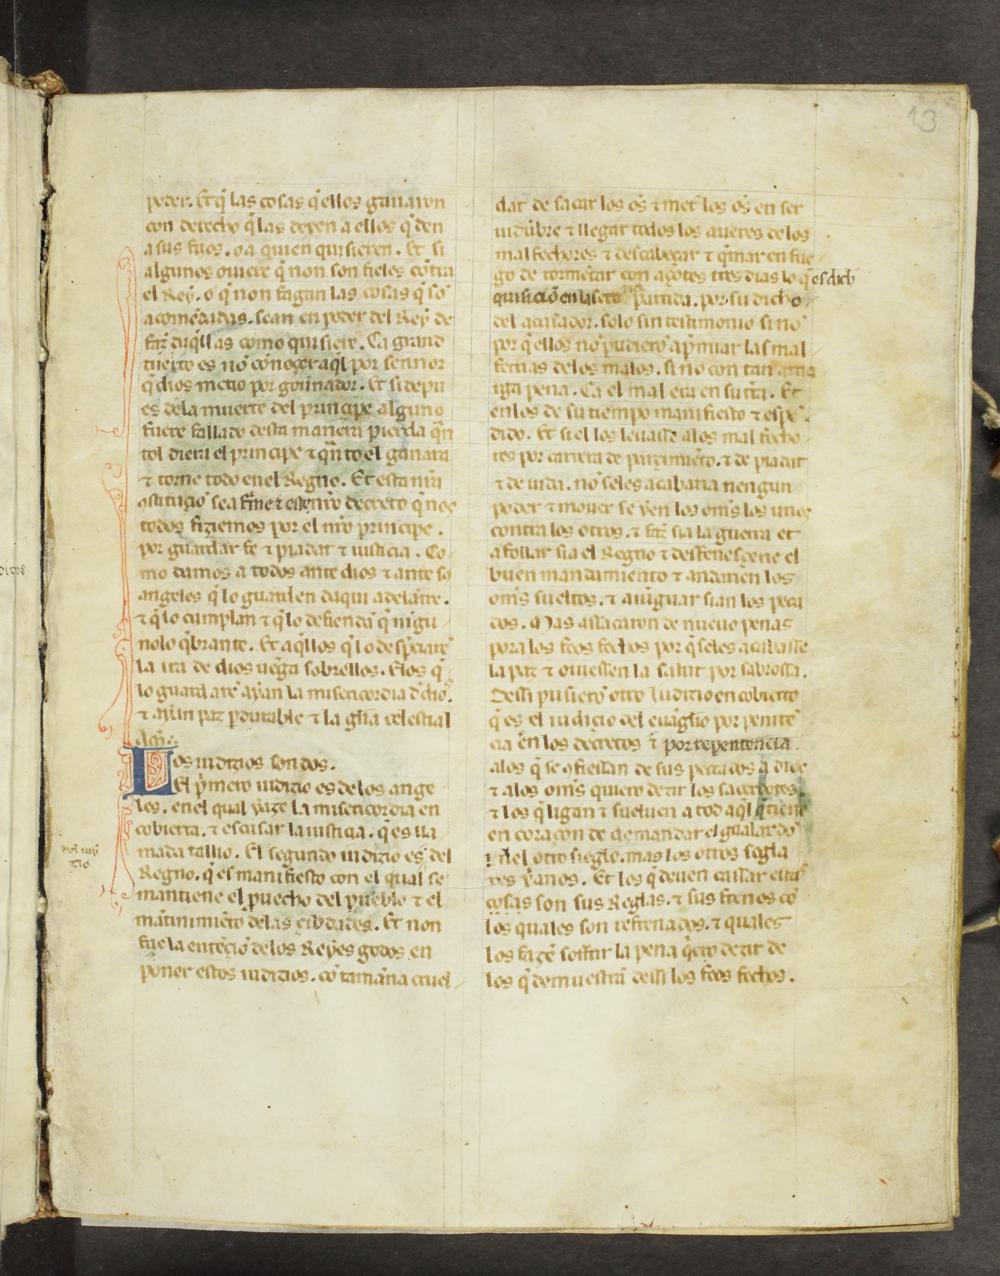 13
poder. Et q̃ las cosas q̃ ellos ganaron
con derecho q̃ las dexen a ellos q̃ den
a sus fijos. o a quien quisieren. Et si
algunos ouiere q̃ non son fieles cõtra
el Rey. o q̃ non fagan las cosas q̃ so
acomẽdadas. sean en poder del Rey de
faz̃ daq̃llas como quisiere. Ca grand
tuerto es nõ cõnoçer aq̃l por sennor
q̃ dios metio por gou̾nador. Et si depu
es dela muerte del prinçipe alguno
fuere fallado desta manera pierda q̃n
tol diera el prinçipe τ q̃nto el ganara
τ torne todo enel Regno. Et esta nr̃a
ostituçiõ sea firme τ nr̃o decreto q̃ nos
todos fiziemos por el nr̃o prinçipe.
por guardar fe τ piadat τ iustiçia. Co
mo damos a todos ante dios τ ante sꝯ
angeles q̃ lo guarden daqui adelãtre.
τ q̃ lo cumplan τ q̃ lo defiendã q̃ nĩgũ
nolo q̃brante. Et aq̃llos q̃ lo
la ira de dios uẽga sobrellos. Elos q̃
lo guardarẽ ayan la misericordia d̃ dios
τ ayan paz pdurable τ la gl̃ia çelestial
Am̃.
Los iudizios son dos.
El p̾mero iudizio es delos ange
les. enel qual yaze la misericordia en
cobierta. τ escusar la iustiça. q̃ es lla
mada tallio. El segundo iudizio es del
Regno. q̃ es manifiesto con el qual se
mantiene el puecho del pueblo τ el
mãtinimiẽto delas çibdades. Et non
fue la entẽçiõ delos Reyes godos en
poner estos iudizios. cõ tamãna cruel
dat de sacar los oios τ met̾ los oios en ser
uidũbre τ llegar todos los aueres delos
mal fechores τ descabeçar τ q̃mar en fue
go de tormẽtar con açotes tres dias lo q̃ es dich
quisiciõ en la seta partida. por su dicho
del acusador. solo sin testimonio si nõ
por q̃ ellos nõ pudierõ ap̾miar las mal
fetrias delos malos. si no con tan ama
rga pena. Ca el mal era en suera. Et
enlos de su tiempo manifiesto τ espẽ
dido. Et si el los leuasse alos mal fecho
res por carrera de τ de piadat
τ de uida. nõ seles acabaria nengun
poder τ mouer se yen los om̃s los unos
contra los otros. τ faz̃ sia la guerra et
afollar sia el Regno τ
buen mandamiento τ andarien los
om̃s sueltos. τ au̾iguar sian los peca
dos. Mas assacaron de nueuo penas
pora los feos fechos por q̃ seles acabasse
la paz τ ouiessen la salut por sabrossa.
Dessi pusierõ otro iudizio encobierto
q̃ es el iudiçio del euãg̃lio por penitẽ
çia en los decretos ĩ por repentencia
alos q̃ se ꝯfiessan de sus peccados a dios
τ alos om̃s quiero dezir los sacerdotes
τ los q̃ ligan τ sueluen a tod aq̃l q̃ tiene
en coraçon de demandar el gualardõ
enel otro sieglo. mas los otros segla
res uanos. Et los q̃ deuen catar estas
cosas son sus Reglas. τ sus frenos cõ
los quales son refrenados. τ quales
los fazẽ soffrir la pena q̃ero dezir de
los q̃ demuestrã dessi los feos fechos.